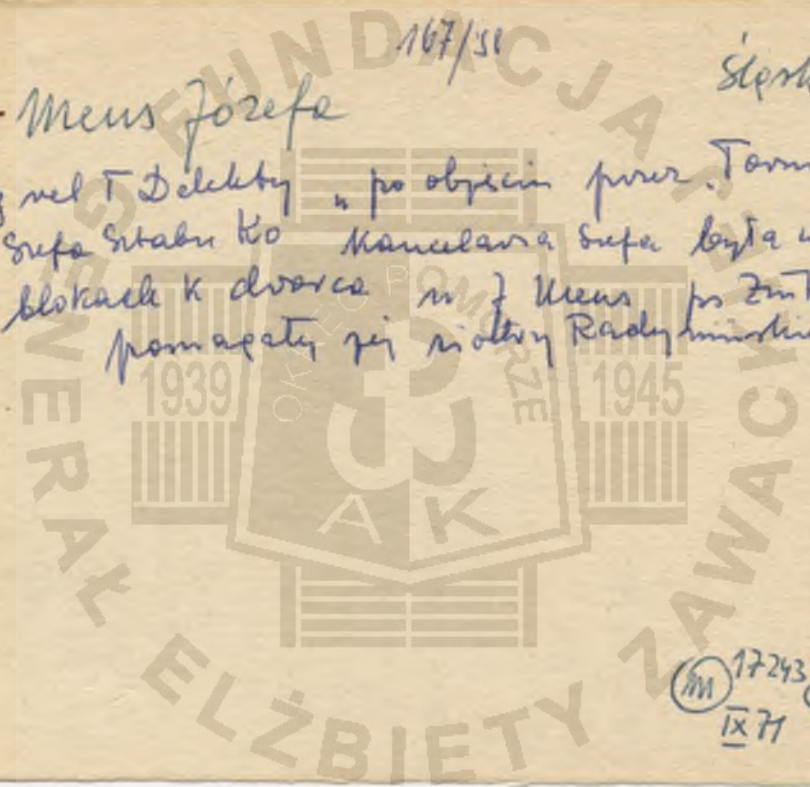 167/
Śląsk
Meus Józefa
vel T Delekty „ po objęciu przez
Szefa Sztabu Ko Kancelaria Szefa była
blokach k dworca u J Meus ps
pomagały jej siostry Radymińskie
17243
IX 71
FUNDACJA GENERAŁ ELŻBIETY ZAWACKIEJ
OKRĘG POMORZE
1939
1945
AK